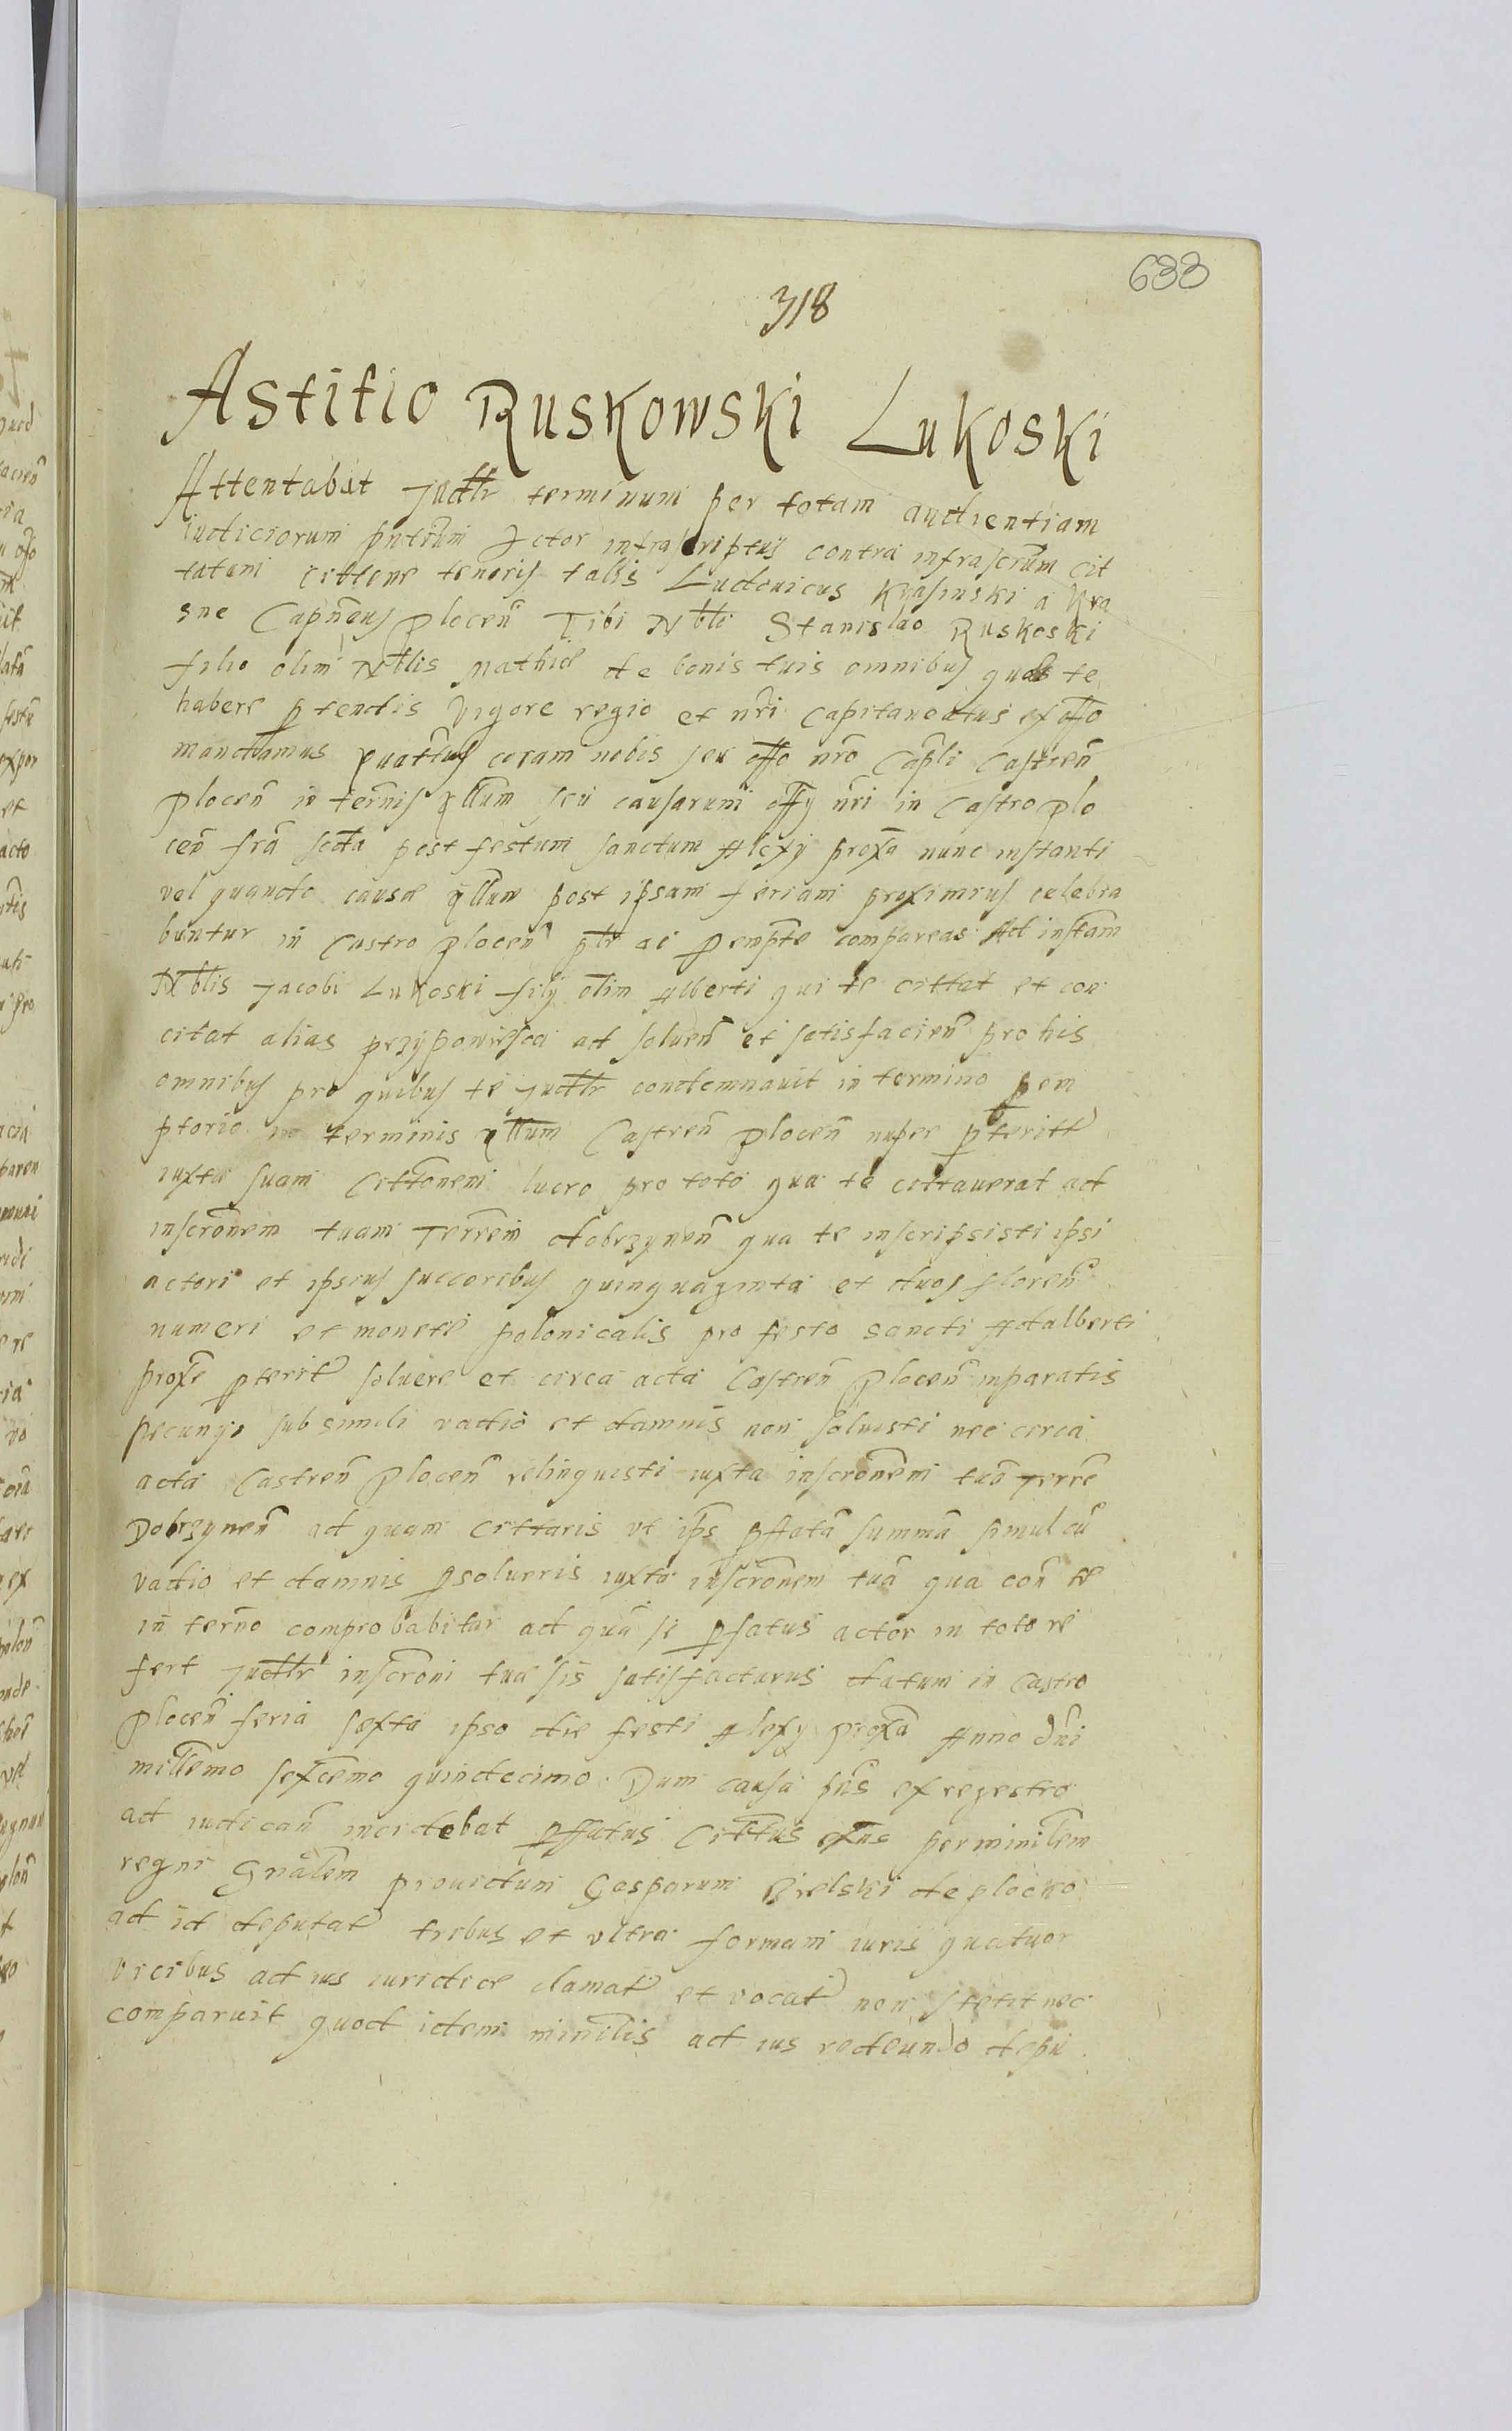 633
318
Astitio Ruskowski Lukoski
Attentabat Judlr terminum per totam audientiam
iudiciorum pntium Actor infrascriptus contra infrascrum cit
tatum cittone tenoris talis Ludovicus Krasinski a Kra
sne Capneus Plocen Tibi Nbli Stanislao Ruskoski
filio olim Nblis Mathiæ de bonis tuis omnibus quæ te
habere ptendis Vigore regio et nri capitaneatus ex offo
mandamus quattus coram nobis seu offo nro Capli Castren
Plocen in ternis qllum seu causarum offy nri in Castro Plo
cen fra sexta post festum sanctum Alexy proxa nunc instanti
vel quando causæ qllum post ipsam feriam proximius celebra
buntur in Castro Plocen plr ac pempte compareas Ad instam
Nblis Jacobi Lukoski filij olim Alberti qui te cittat et con
citat alias przypowiesca ad soluen et satisfacien pro his
omnibus pro quibus te Judlr condemnauit in termino pem
ptorio in terminis qllum Castren Plocen nuper pteritt
iuxta suam Cittonem lucro pro toto qua te cittauerat ad
inscronem tuam Terrem dobrzynen qua te inscripsisti ipsi
actori et ipsius succoribus quinquaginta et duos floren
numeri et monetæ polonicalis pro festo Sancti Adalberti
proxe pterit soluere et circa acta Castren Plocen inparatis
pecunys sub simili vadio et damnis non soluisti nec circa
acta Castren Plocen relinquisti iuxta inscronem tua Terre
Dobrzynen ad quam cittaris vt ips pffata summa simul cu
vadio et damnis psolueris iuxta inscronem tua qua con te
in terno comprobabitur ad qua se pfatus actor in toto re
fert Judlr inscroni tuæ sis satisfacturus datum in Castro
Plocen feria sexta ipso die festi Alexy proxa Anno dni
millemo sexcemo quindecimo. Dum causa pns ex regestro
ad iudican incidebat pffatus Cittus per minilem
regni Gnalem prouidum Gasparum Bielski de plocko
ad id deputat tribus et vltra formam iuris quatuor
vicibus ad ius iuridicæ clamat et vocat non stetit nec
comparuit quod idem minilis ad ius redeundo depu